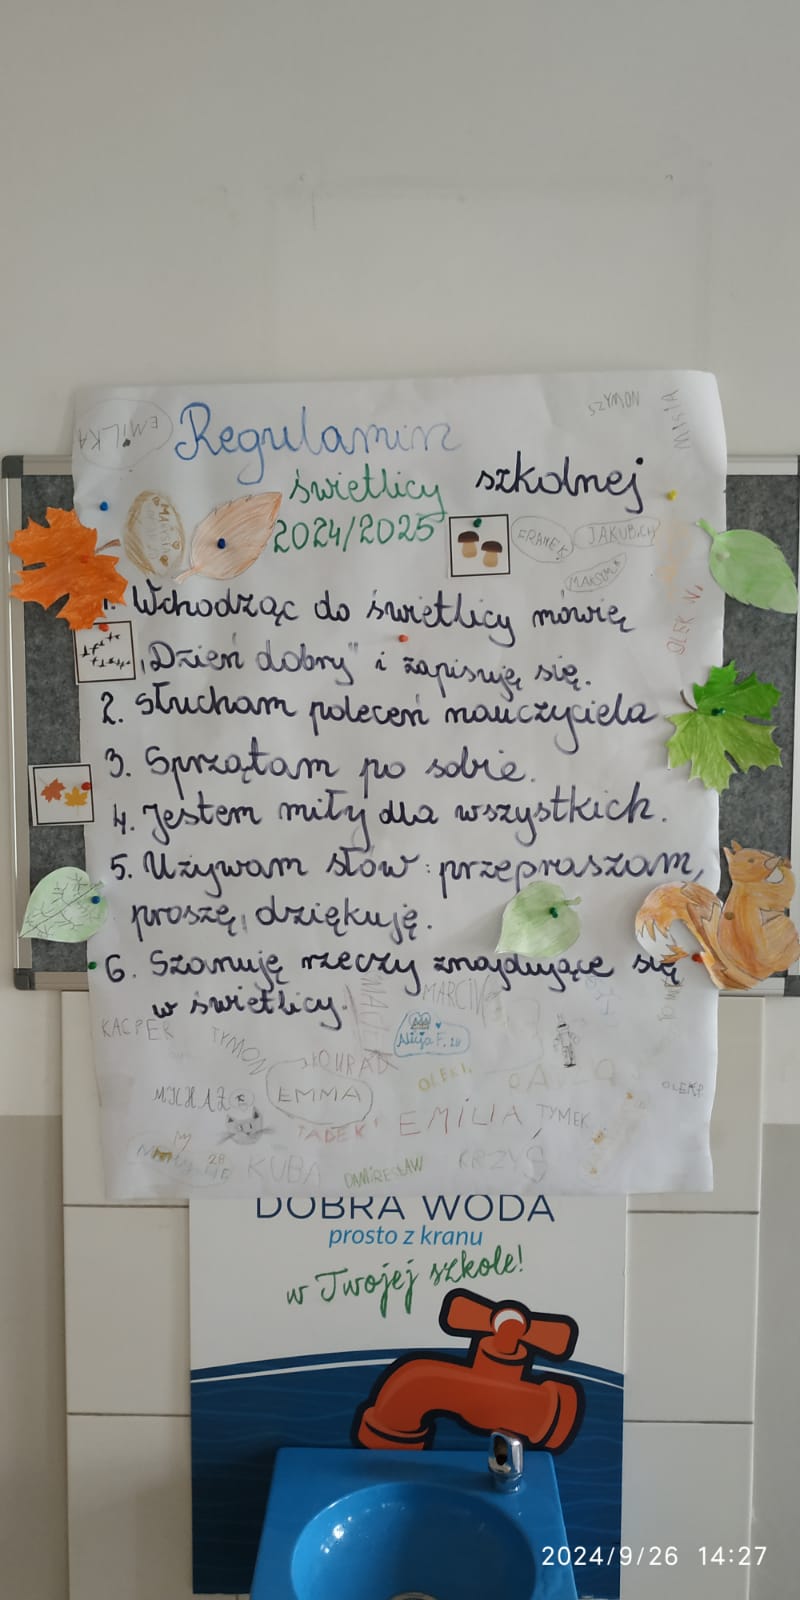 EMILKA
SZYMON
MISIA
Regulamin
świetlicy szkolnej
2024/2025
FRANEK
JAKUB.CH
OLEK N.
1. Wchodząc do świetlicy mówię
„Dzień dobry" i zapisuję się.
2. Słucham poleceń nauczyciela
3. Sprzątam po sobie.
4. Jestem miły dla wszystkich.
5. Używam słów: przepraszam,
proszę, dziękuję.
6. Szanuję rzeczy znajdujące się
w świetlicy.
MARCIN
KACPER
TYMON
Alicja F. 2a
KONRAD
EMMA
TADEK
EMILIA
TYMEK
KUBA
KRZYŚ
DOBRA WODA
prosto z kranu
w Twojej szkole!
2024/9/26 14:27